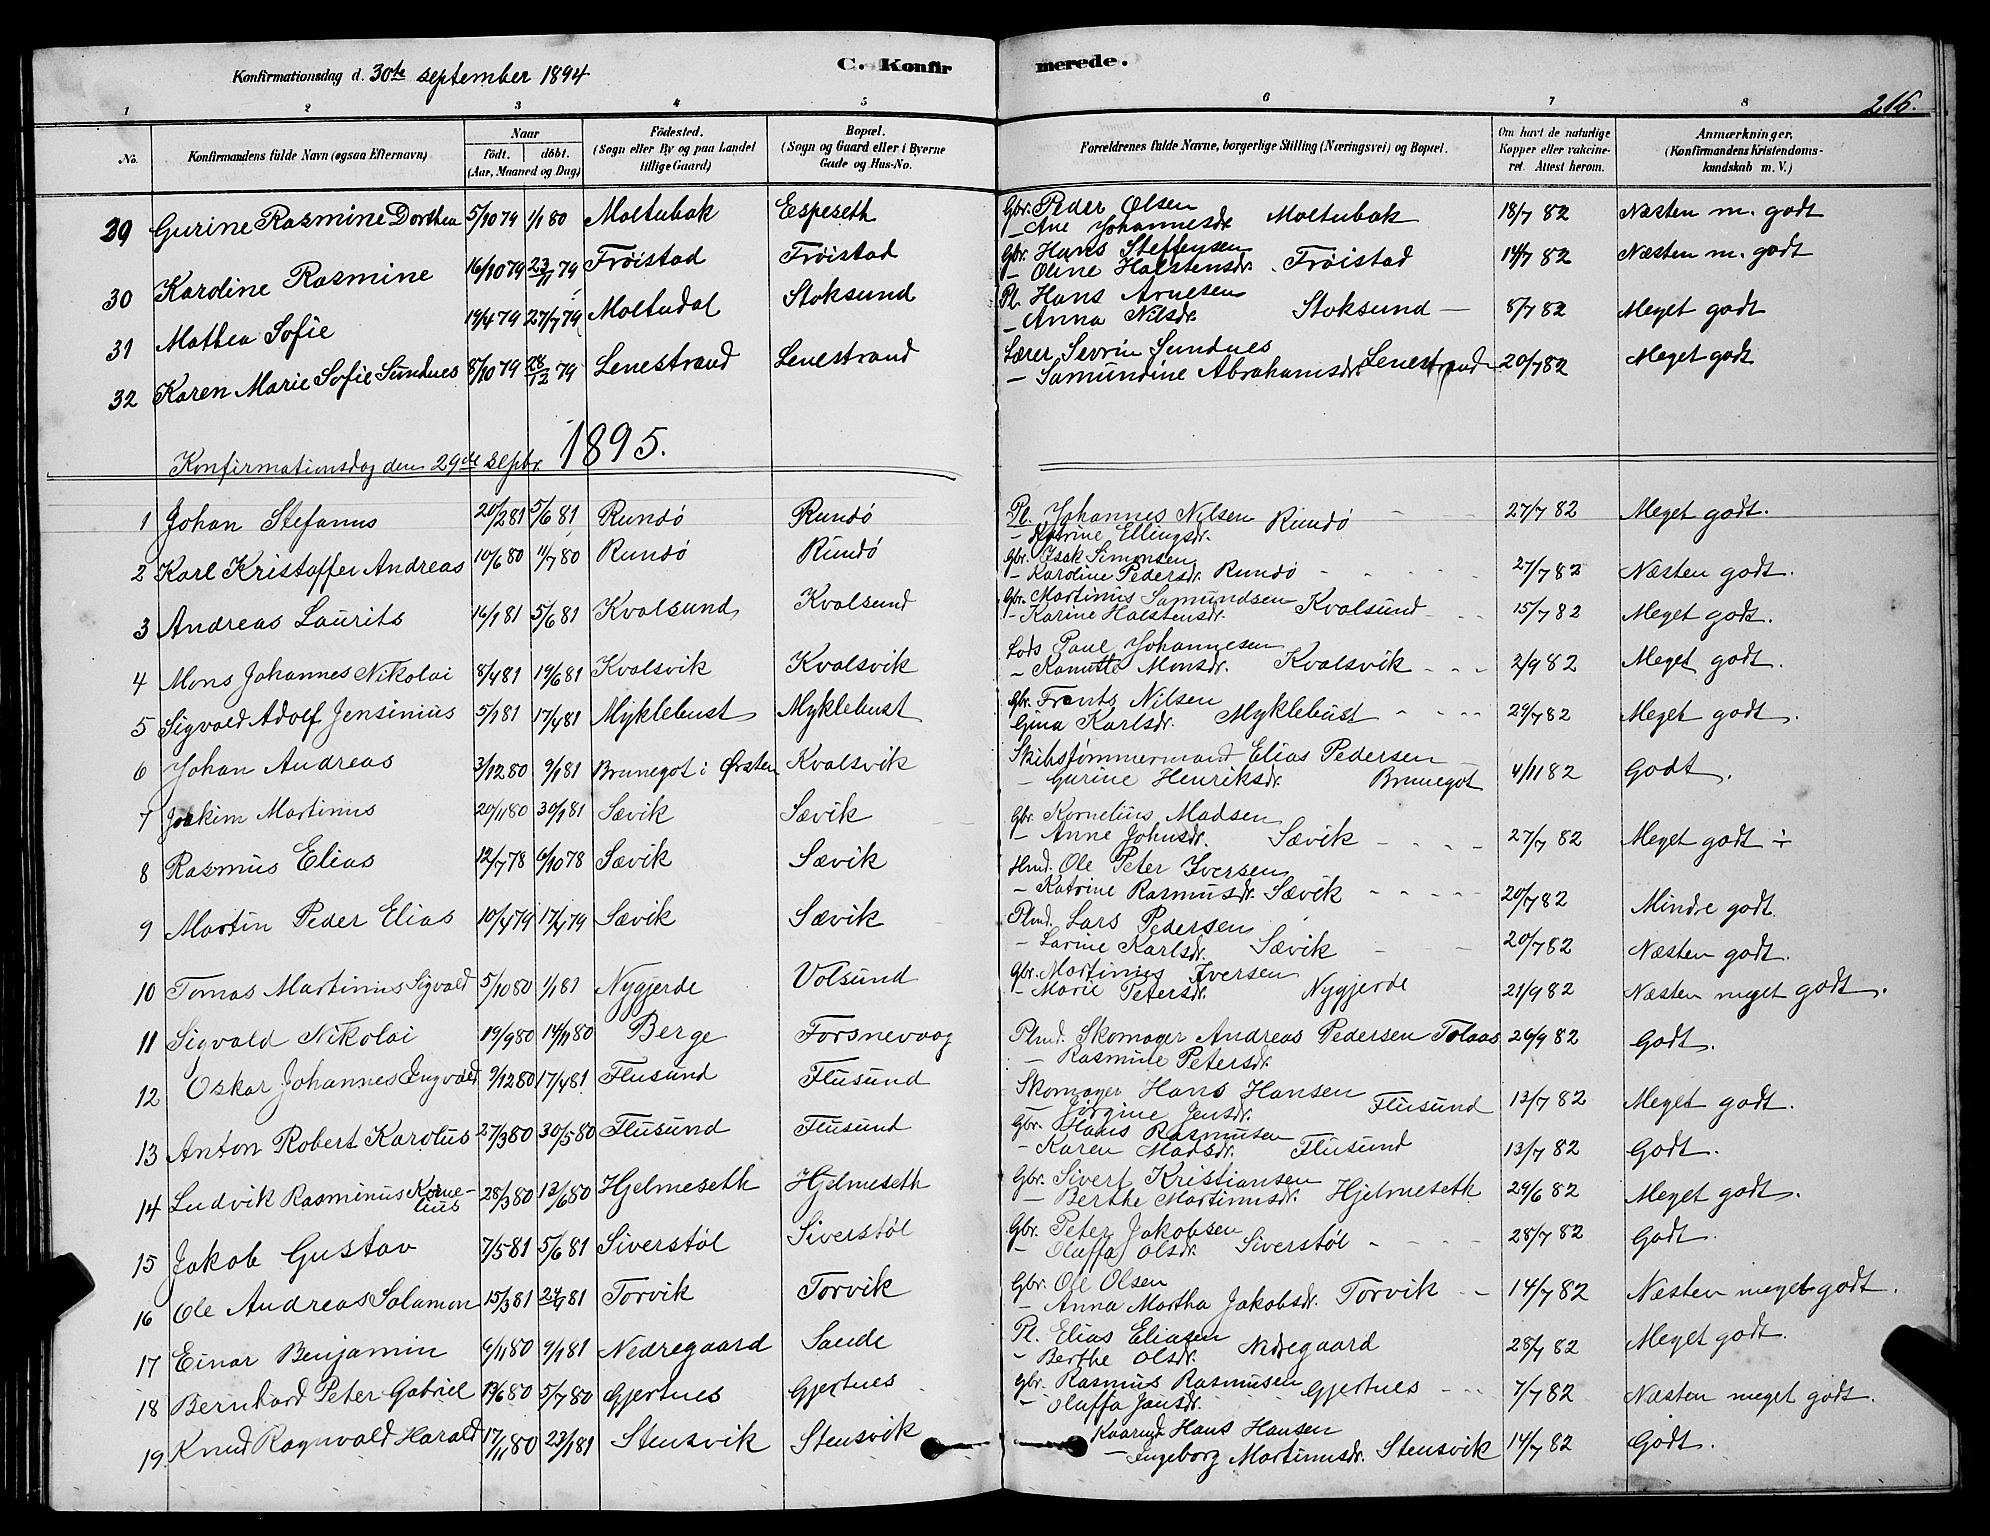 C. Konfirmerede.
Konfirmationsdag d. 30te september 1894
216.
1 2 3 4 5 6 7 8
No. Konfirmandens fulde Navn (ogsaa Efternavn) Naar födt. döbt. (Aar, Maaned og Dag) Födested. (Sogn eller By og paa Landet tillige Gaard) Bopæl. (Sogn og Gaard eller i Byerne Gade og Hus-No. Forældrenes fulde Navne, borgerlige Stilling (Næringsvei) og Bopæl. Om havt de naturlige Kopper eller vakcineret. Attest herom. Anmærkninger. (Konfirmandens Kristendomskundskab m. V.)
29 Gurine Rasmine Dorthea 5/10 79 1/1 80 Moltubak Espeseth Gbr. Peder Olsen
– Ane Johannesdr. Moltubak 18/7 82 Næsten m. godt
30 Karoline Rasmine 16/10 79 23/11 79 Frøistad Frøistad Gbr. Hans Steffensen
– Oline Halstensdr. Frøistad 14/7 82 Næsten m. godt
31 Mathea Sofie 19/4 79 27/7 79 Moltudal Stoksund Pl. Hans Arnesen
– Anna Nilsdr. Stoksund — 8/7 82 Meget godt
32 Karen Marie Sofie Sundnes 8/10 79 28/12 79 Lenestrand Lenestrand Lærer Sevrin Sundnes
– Samundine Abrahamsdr. Lenestrand 20/7 82 Meget godt
Konfirmationsdag den 29de septbr. 1895.
1 Johan Stefanus 20/2 81 5/6 81 Rundö Rundö Pl. Johannes Nilsen
– Katrine Ellingsdr. Rundö 27/7 82 Meget godt.
2 Karl Kristoffer Andreas 10/6 80 11/7 80 Rundö Rundö Gbr. Isak Simonsen
– Karoline Pedersdr. Rundö 27/7 82 Næsten godt.
3 Andreas Laurits 16/1 81 5/6 81 Kvalsund Kvalsund Gbr. Martinus Samundsen
– Karine Halstensdr. Kvalsund 15/7 82 Meget godt.
4 Mons Johannes Nikolai 8/4 81 19/6 81 Kvalsvik Kvalsvik Lods Paul Johannesen
– Kanutte Monsdr. Kvalsvik 2/9 82 Meget godt.
5 Sigvald Adolf Jensinius 5/1 81 17/4 81 Myklebust Myklebust Gbr. Frants Nilsen
Gina Karlsdr. Myklebust 29/7 82 Meget godt.
6 Johan Andreas 3/12 80 9/1 81 Brunegot i Ørsten Kvalsvik Skibstømmermand Elias Pedersen
– Gurine Henriksdr. Brunegot 4/11 82 Godt.
7 Joakim Martinus 20/11 80 30/1 81 Sævik Sævik Gbr. Kornelius Madsen
– Anne Johnsdr. Sævik 27/7 82 Meget godt ÷
8 Rasmus Elias 12/7 78 6/10 78 Sævik Sævik Hmd. Ole Peter Iversen
– Katrine Rasmusdr. Sævik 20/7 82 Mindre godt.
9 Martin Peder Elias 10/4 79 17/4 79 Sævik Sævik Plmd. Lars Pedersen
– Larine Karlsdr. Sævik 20/7 82 Næsten godt.
10 Tomas Martinus Sigvald 5/10 80 1/1 81 Nygjerde Volsund Gbr. Martinus Iversen
– Marie Petersdr. Nygjerde 21/9 82 Næsten meget godt.
11 Sigvald Nikolai 19/9 80 14/11 80 Berge Forsnevaag Plmd. Skomager Andreas Pedersen Tolaas
– Rasmine Petersdr. 26/9 82 Godt.
12 Oskar Johannes Ingvald 9/12 80 17/4 81 Flusund Flusund Skomager Hans Hansen
– Jørgine Jensdr. Flusund 13/7 82 Meget godt.
13 Anton Robert Karolus 27/3 80 30/5 80 Flusund Flusund Gbr. Hans Rasmusen
– Karen Madsdr. Flusund 13/7 82 Godt.
14 Ludvik Rasminus Kornelius 28/3 80 13/6 80 Hjelmeseth Hjelmeseth Gbr. Sivert Kristiansen
– Berthe Martinusdr. Hjelmeseth 29/6 82 Meget godt.
15 Jakob Gustav 7/5 81 5/6 81 Siverstøl Siverstøl Gbr. Peter Jakobsen
– Oluffa Olsdr. Siverstøl 28/7 82 Godt.
16 Ole Andreas Salamon 15/3 81 24/4 81 Torvik Torvik Gbr. Ole Olsen
– Anna Martha Jakobsdr. Torvik 14/7 82 Næsten meget godt.
17 Einar Benjamin 6/11 80 9/1 81 Nedregaard Sande Pl. Elias Eliasen
– Berthe Olsdr. Nedregaard 28/7 82 Meget godt.
18 Bernhard Peter Gabriel 13/6 80 5/7 80 Gjertnes Gjertnes Gbr. Rasmus Rasmusen
– Oluffa Jansdr. Gjertnes 7/7 82 Næsten meget godt.
19 Knud Ragnvald Harald 17/11 80 23/1 81 Stensvik Stensvik Kaarmd. Hans Hansen
– Ingeborg Martinusdr. Stensvik 14/7 82 Godt.